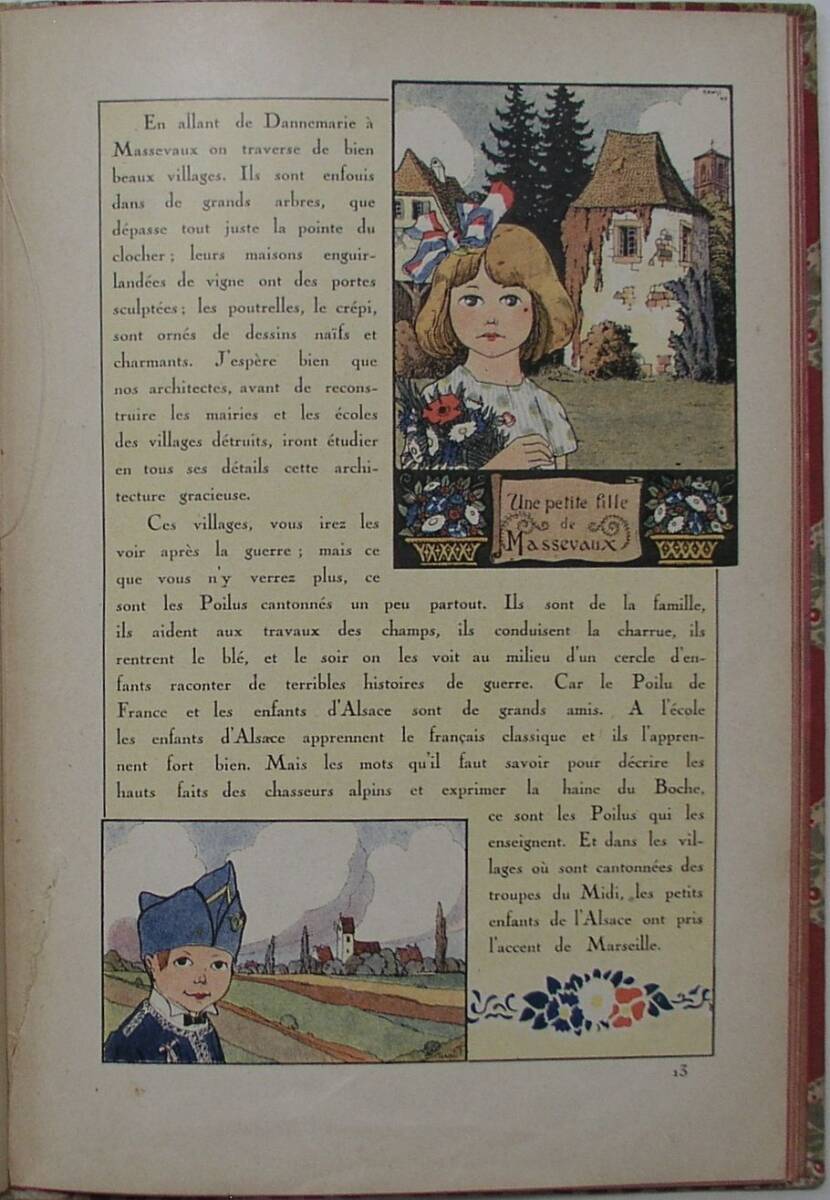 En allant de Dannemarie à
Massevaux on traverse de bien
beaux villages. Ils sont enfouis
dans de grands arbres, que
dépasse tout juste la pointe du
clocher ; leurs maisons enguir-
landées de vigne ont des portes
sculptées ; les poutrelles, le crépi,
sont ornés de dessins naïfs et
charmants. J'espère bien que
nos architectes, avant de recons-
truire les mairies et les écoles
des villages détruits, iront étudier
en tous ses détails cette archi-
tecture gracieuse.
Ces villages, vous irez les
voir après la guerre ; mais ce
que vous n'y verrez plus, ce
Une petite fille
de
Massevaux
sont les Poilus cantonnés un peu partout. Ils sont de la famille,
ils aident aux travaux des champs, ils conduisent la charrue, ils
rentrent le blé, et le soir on les voit au milieu d'un cercle d'en-
fants raconter de terribles histoires de guerre. Car le Poilu de
France et les enfants d'Alsace sont de grands amis. A l'école
les enfants d'Alsace apprennent le français classique et ils l'appren-
nent fort bien. Mais les mots qu'il faut savoir pour décrire les
hauts faits des chasseurs alpins et exprimer la haine du Boche,
ce sont les Poilus qui les
enseignent. Et dans les vil-
lages où sont cantonnées des
troupes du Midi, les petits
enfants de l'Alsace ont pris
l'accent de Marseille.
13